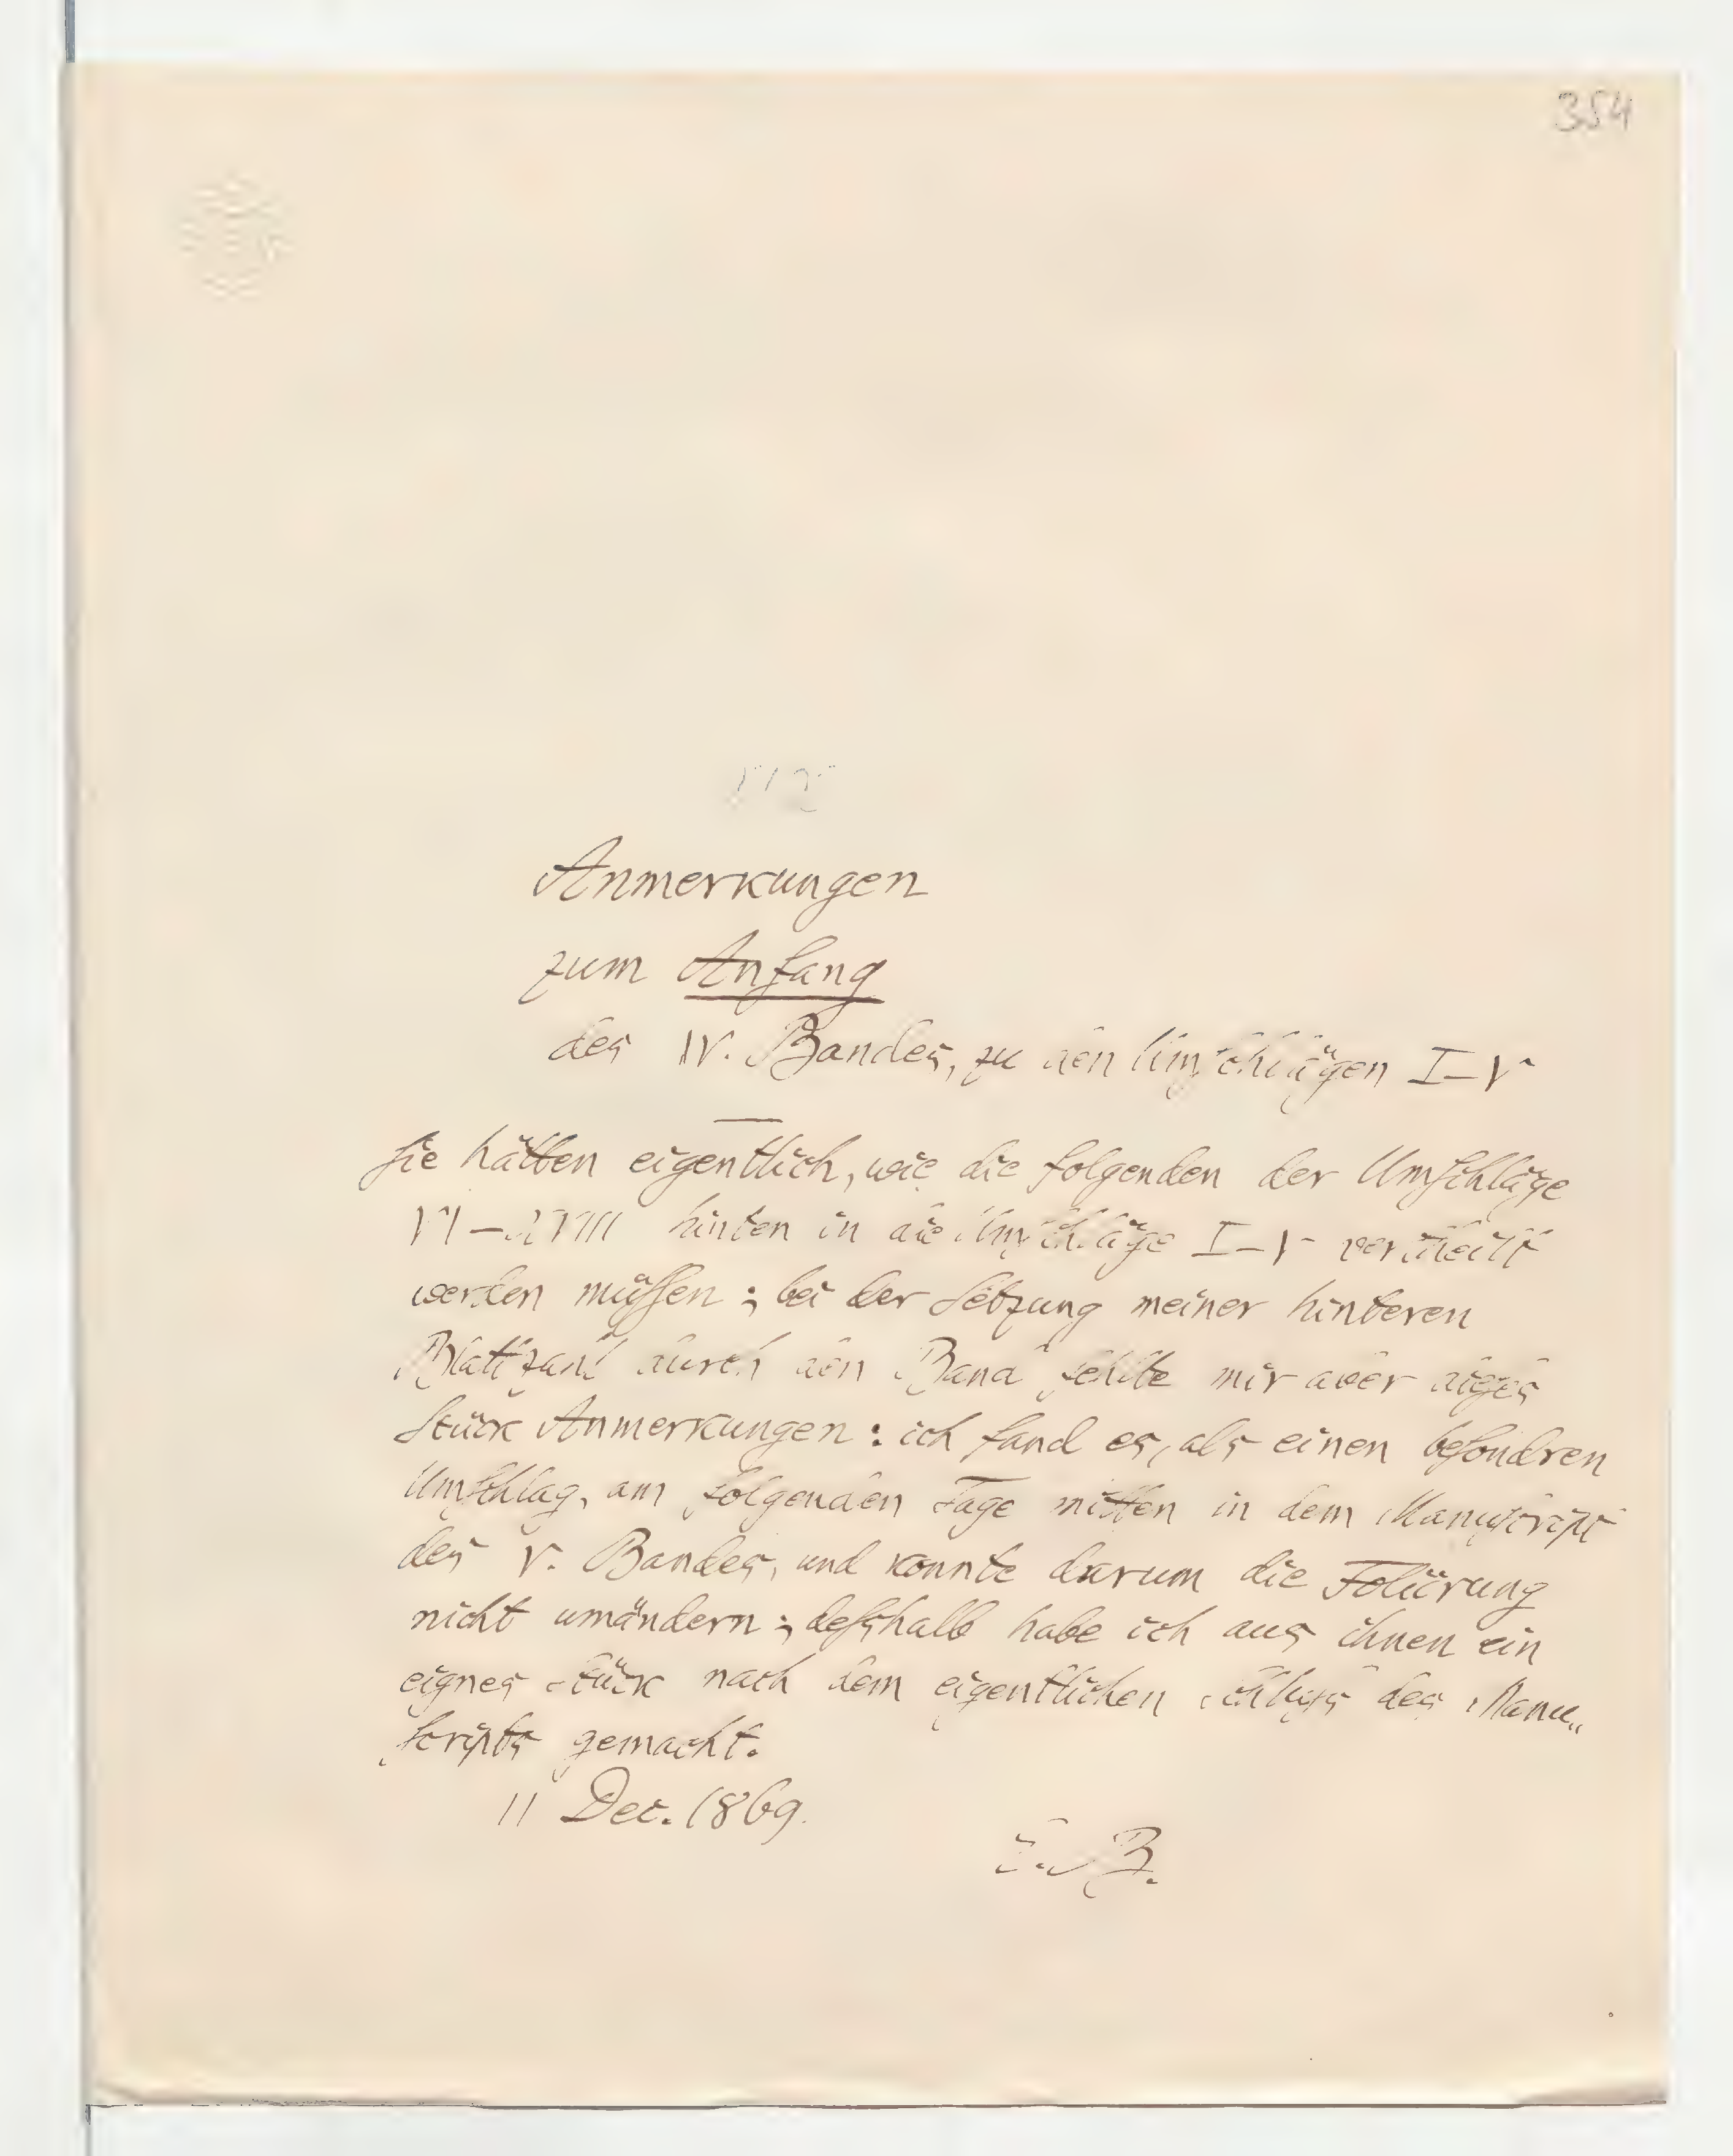 354
Anmerkungen
zum Anfang
des IV. Bandes, zu den Umschlägen I–V
Sie hätten eigentlich, wie die folgenden der Umschläge
hinten in die Umschläge I–V vertheilt
werden müssen; bei der Setzung meiner hinteren
Blattzahl durch den Band fehlte mir aber dieses
Stück Anmerkungen: ich fand es, als einen besondren
Umschlag, am folgenden Tage mitten in dem Manuscript
des V. Bandes, und konnte darum die Foliirung
nicht umändern; desshalb habe ich aus ihnen ein
eignes Stück nach dem eigentlichen Schluss des Manu„
scripts gemacht.
11 Dec. 1869.
B.